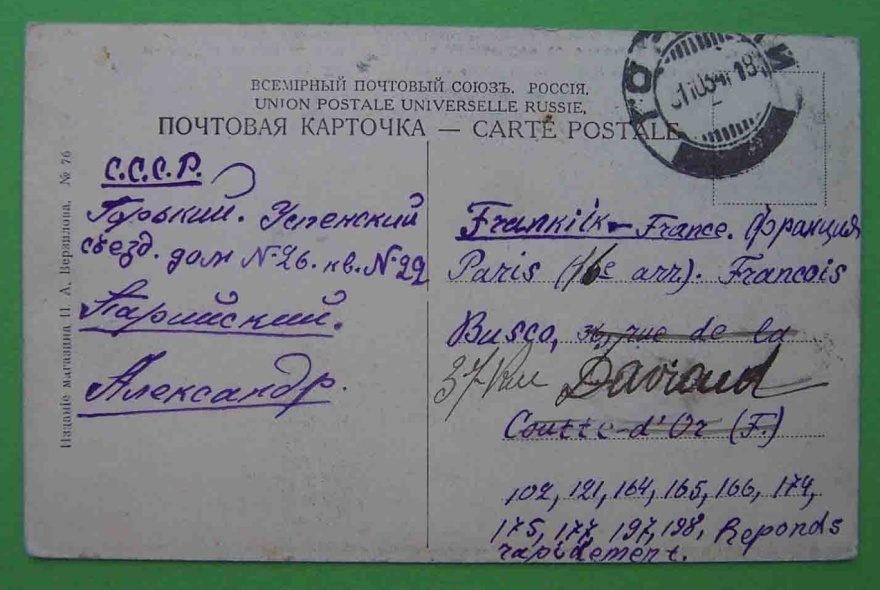 ВСЕМІРНЫЙ ПОЧТОВЫЙ СОЮЗЪ. РОССІЯ.
UNION POSTALE UNIVERSELLE RUSSIE.
ПОЧТОВАЯ КАРТОЧКА — CARTE POSTALE
Изданіе магазина П А. Верзилова. № 76
С.С.С.Р.
Горький. Успенский
съезд. дом №26. кв. №22
Парийский.
Александр.
France. Франция
Paris (16e arr). Francois
Busco, 36, rue de la
37 Rue Daviaud
Coutte-d'Or (F.)
102, 121, 164, 165, 166, 174,
175, 177, 197, 198, Reponds
rapidement.